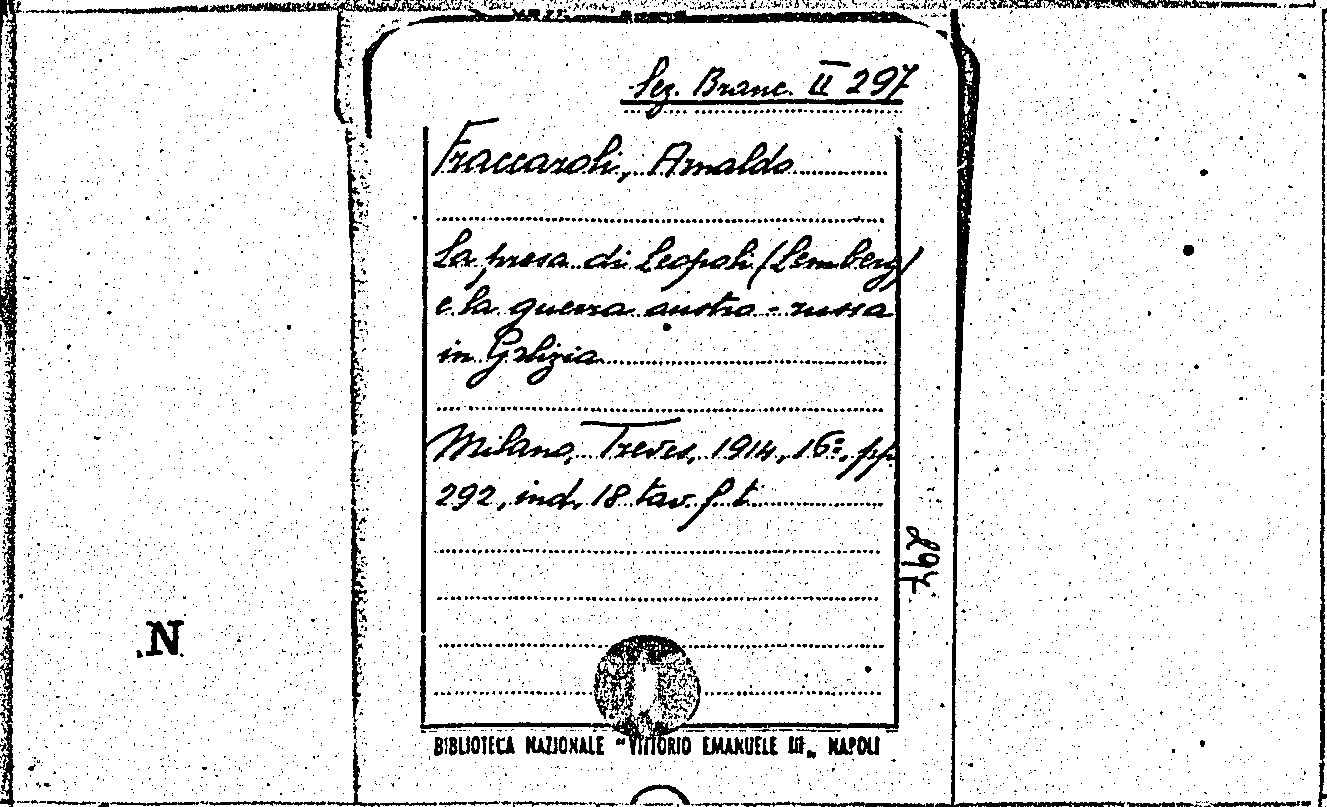 Sez. Branc. II 297
Fraccaroli, Arnaldo
La presa di Leopoli (Lemberg)
e la guerra austro-russa
in Galizia
Milano, Treves, 1914, 16°, pp.
292, ind, 18 tav. f. t.
297
N
BIBLIOTECA NAZIONALE "VITTORIO EMANUELE III„ NAPOLI